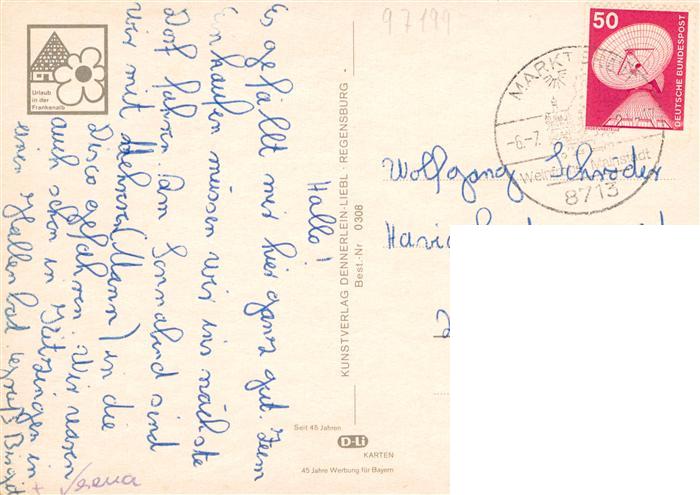 97199
Urlaub
in der
Frankenalb
Hallo!
Es gefällt mir hier ganz gut. Zum
Einkaufen müssen wir ins nächste
Dorf fahren. Am Sonnabend sind
wir mit Mehrer( Mann) in die
Disco gefahren. Wir waren
auch schon in Kitzingen in
einem Hallenbad. Gruß Birgit
+ Verena
KUNSTVERLAG DENNERLEIN-LIEBL · REGENSBURG -
Best.-Nr 0308
Seit 45 Jahren
D-Li
KARTEN
45 Jahre Werbung für Bayern
50
DEUTSCHE BUNDESPOST
MARKT
-6.-7.
Mainstadt
8713
Wolfgang Schröder